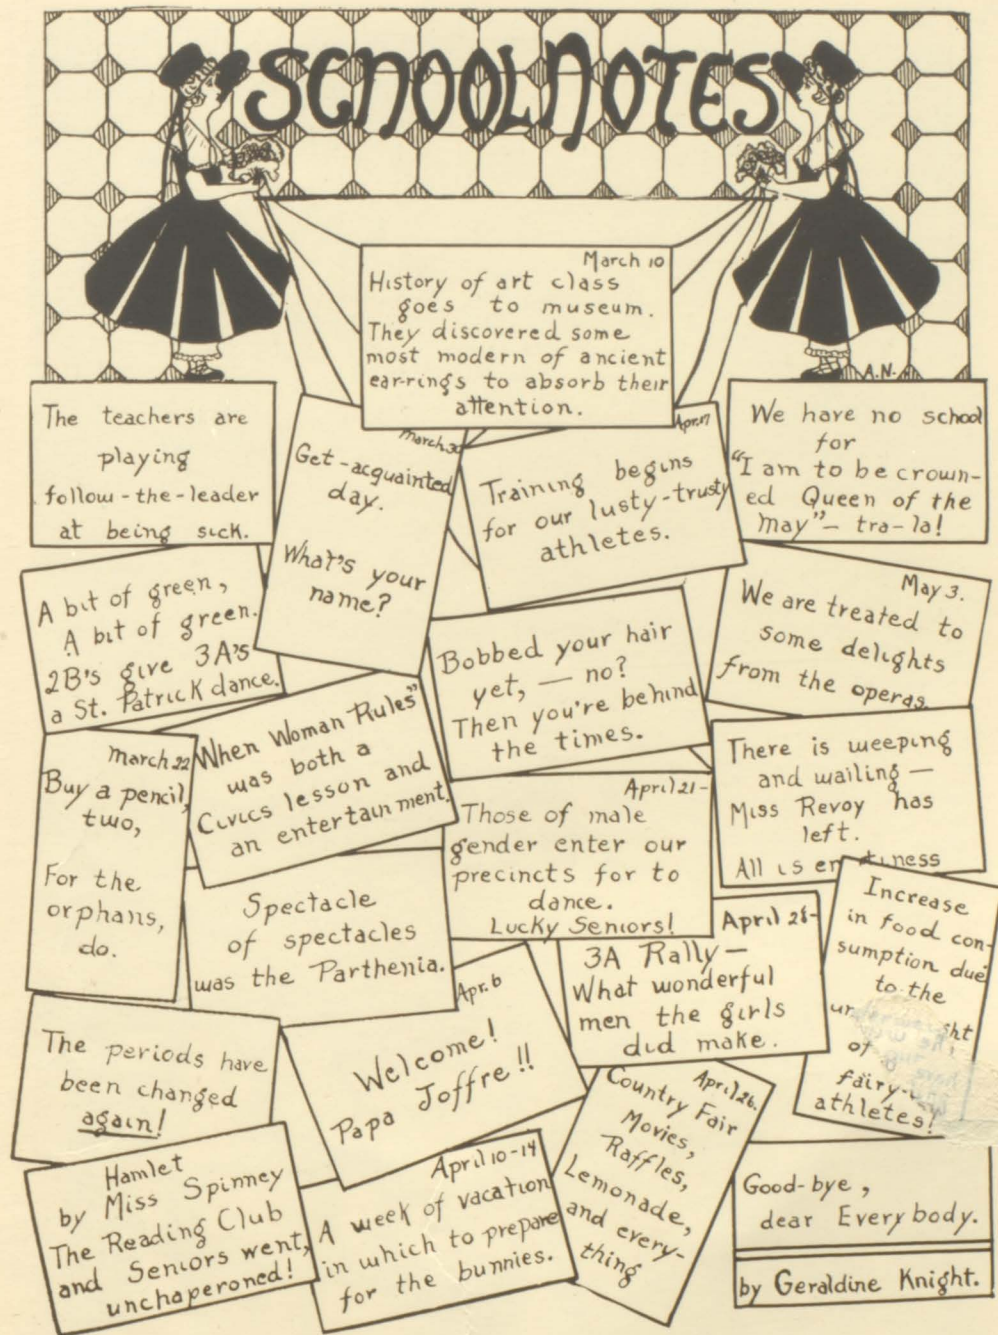 SCHOOL NOTES
A.N.
March 10
History of art class
goes to museum.
They discovered some
most modern of ancient
ear-rings to absorb their
attention.
The teachers are
playing
follow-the-leader
at being sick.
March 30
Get-acquainted
day.
What's your
name?
Apr. 17
Training begins
for our lusty-trusty
athletes.
We have no school
for
"I am to be crown-
ed Queen of the
May"- tra-la!
A bit of green,
A bit of green.
2B's give 3A's
a St. Patrick dance.
Bobbed your hair
yet, — no?
Then you're behind
the times.
May 3.
We are treated to
some delights
from the operas.
March 22
Buy a pencil,
two,
For the
orphans,
do.
When Woman Rules"
was both a
Civics lesson and
an entertainment.
April 21-
Those of male
gender enter our
precincts for to
dance.
Lucky Seniors!
There is weeping
and wailing —
Miss Revoy has
left.
All is emptiness
Spectacle
of spectacles
was the Parthenia.
April 28-
3A Rally —
What wonderful
men the girls
did make.
Increase
in food con-
sumption due
to the
underweight
of our
fairy-
athletes!
The periods have
been changed
again!
Apr. 6
Welcome!
Papa Joffre!!
April 26.
Country Fair
Movies,
Raffles,
Lemonade,
and every-
thing
Hamlet
by Miss Spinney
The Reading Club
and Seniors went,
unchaperoned!
April 10-14
A week of vacation
in which to prepare
for the bunnies.
Good-bye,
dear Everybody.
by Geraldine Knight.